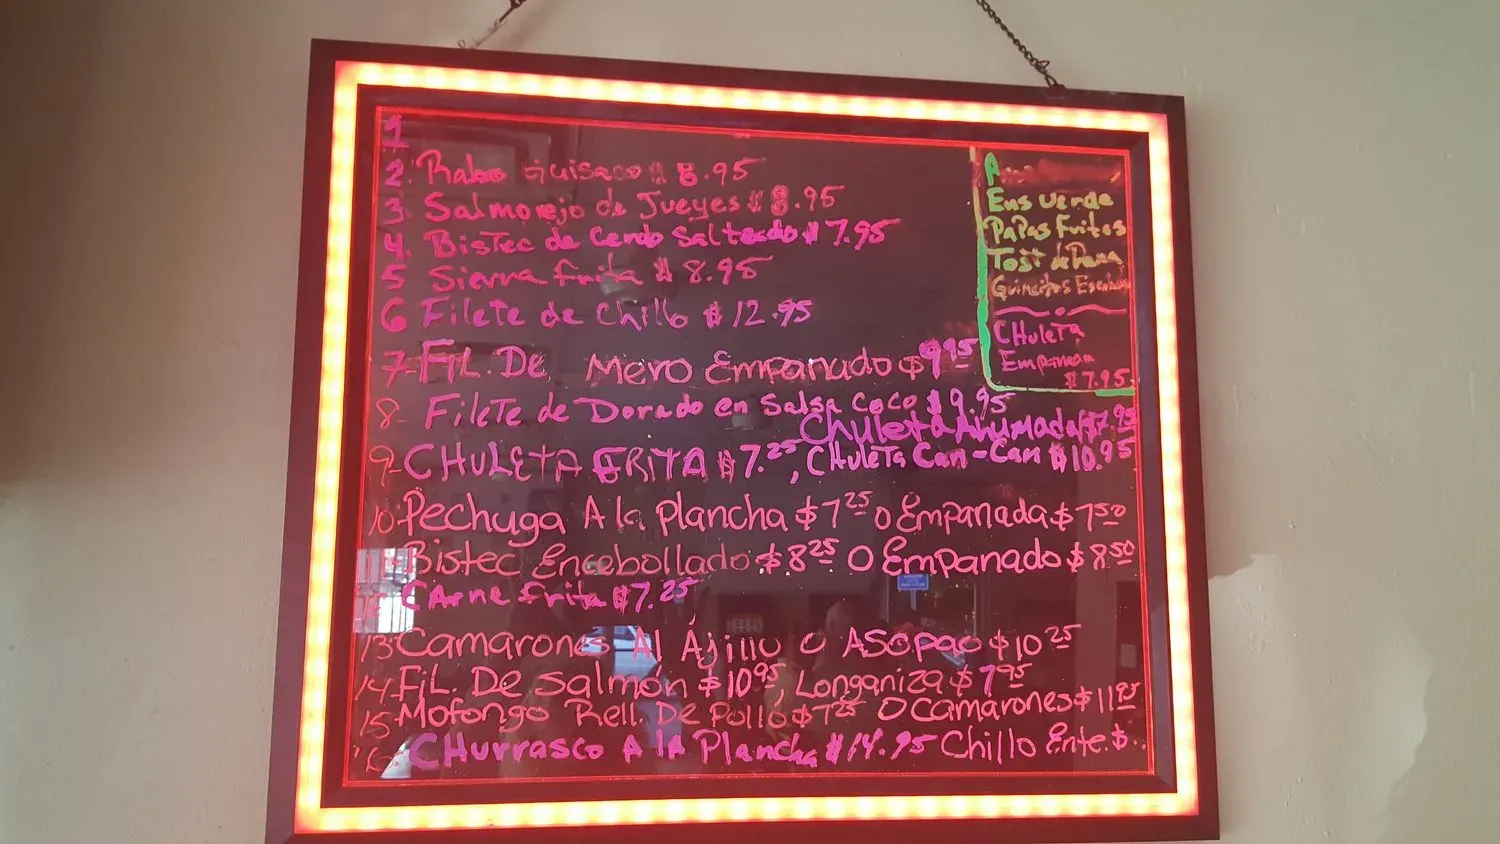 1
2. Rabo Guisado $ 8.95
3. Salmorejo de Jueyes $ 8.95
4. Bistec de Cerdo Salteado $ 7.95
5 Sierra frita $ 8.95
6 Filete de Chillo $ 12.95
7- Fil. De Mero Empanado $ 9.95
8- Filete de Dorado en Salsa Coco $ 9.95
Chuleta Ahumada $7.95
9- CHULETA FRITA $7.25, CHuleTa Can-Can $10.95
10 Pechuga A la Plancha $7.25 o Empanada $7.50
11- Bistec Encebollado $8.25 O Empanado $8.50
Carne frita $7.25
13- Camarones Al Ajillo O Asopao $10.25
14- Fil. De Salmón $10.95, Longaniza $7.95
15- Mofongo Rell. De Pollo $7.25 O Camarones $11.95
16- CHurrasco A la Plancha $14.95 Chillo Ente. $..
A
Ens verde
Papas fritas
Tost de Pana
Guineitos
CHuleTa
Empanada
$7.95